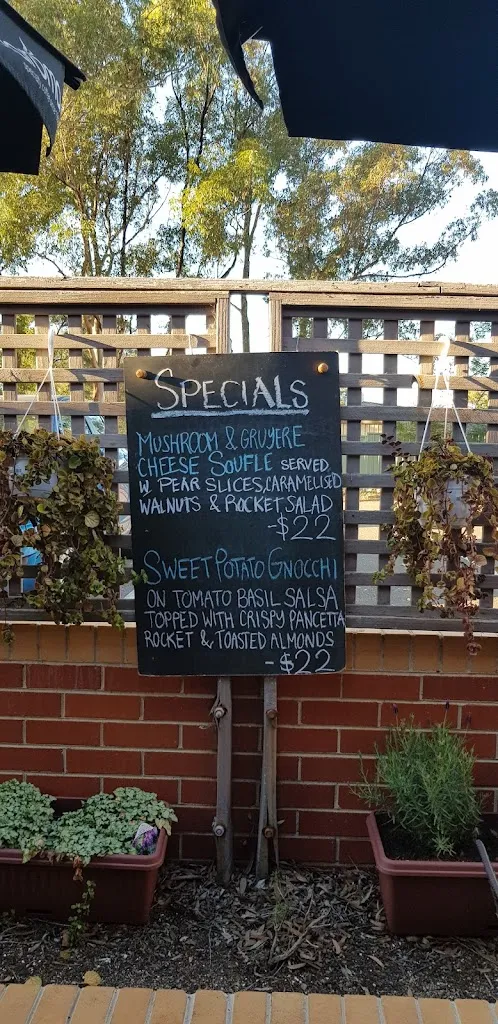 SPECIALS
MUSHROOM & GRUYERE
CHEESE SOUFLE SERVED
W PEAR SLICES, CARAMELISED
WALNUTS & ROCKET SALAD
-$22
SWEET POTATO GNOCCHI
ON TOMATO BASIL SALSA
TOPPED WITH CRISPY PANCETTA
ROCKET & TOASTED ALMONDS
-$22